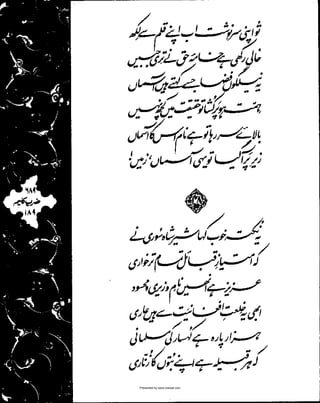 تو اپنی سرنوشت اب اپنے قلم سے لکھ
خالی رکھی ہے خامۂ حق نے تری جبیں
یہ نیلگوں فضا جسے کہتے ہیں آسماں
ہمت ہو پرکشا تو حقیقت میں کچھ نہیں
بالائے سر رہا تو ہے نام اس کا آسماں
زیرِ پر آ گیا تو یہی آسماں، زمیں!
یہ نکتہ خوب کہا شیر شاہ سوری نے
کہ امتیازِ قبائل تمام تر خواری
عزیز ہے انھیں نامِ وزیری و محسود
ابھی یہ خلعتِ افغانیت سے ہیں عاری
ہزار پارہ ہے کہسار کی مسلمانی
کہ ہر قبیلہ ہے اپنے بتوں کا زناری
ضربِ کلیم
۱۸۹
Presented by www.iqbalcyber.com